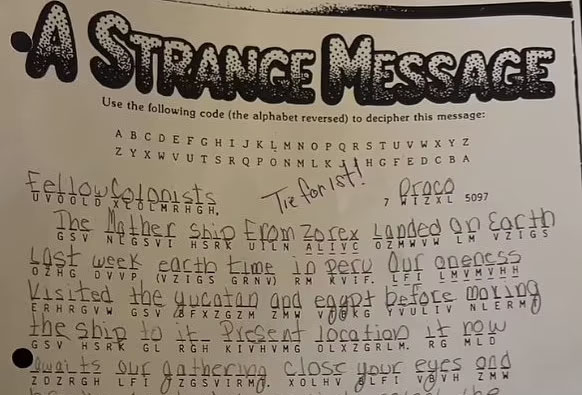 A STRANGE MESSAGE
Use the following code (the alphabet reversed) to decipher this message:
A B C D E F G H I J K L M N O P Q R S T U V W X Y Z
Z Y X W V U T S R Q P O N M L K J I H G F E D C B A
Tie for 1st!
Fellow Colonists Draco
UVOOLD XLOLMRHGH, 7 WIZXL 5097
The Mother Ship From Zorex Landed On Earth
GSV NLGSVI HSRK UILN ALIVC OZMWVW LM VZIGS
Last week earth time in peru Our oneness
OZHG DVVP (VZIGS GRNV) RM KVIF. LFI LMVMVHH
Visited the yucatan and egypt before moving
ERHRGVW GSV BFXZGZM ZMW VTBKG YVULIV NLERMT
the ship to it Present location it now
GSV HSRK GL RGH KIVHVMG OLXZGRLM. RG MLD
awaits our gathering close your eyes and
ZDZRGH LFI TZGSVIRMT. XOLHV BLFI VBVH ZMW
the